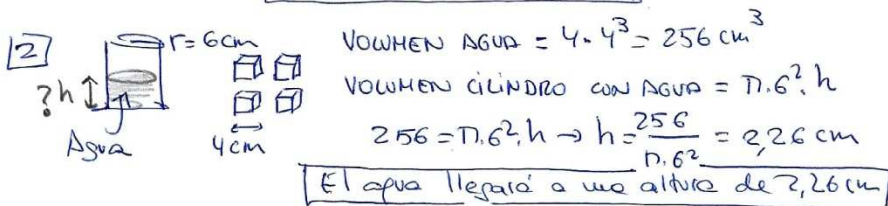 2
r=6cm
?h
Agua
4cm
VOLUMEN AGUA = 4·4³ = 256 cm³
VOLUMEN CILINDRO CON AGUA = π.6².h
256 = π.6².h → h = 256/π.6² = 2,26 cm
El agua llegará a una altura de 2,26 cm